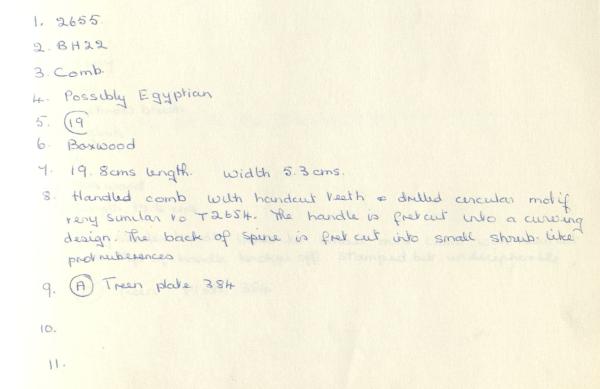 1. 2655.
2. BH22
3. Comb.
4. Possibly Egyptian
5. 19
6. Boxwood
7. 19.8cms length. Width 5.3cms.
8. Handled comb with handcut teeth & drilled circular motif
very similar to T2654. The handle is fret cut into a curving
design. The back of spine is fret cut into small shrub-like
protruberences
9. A Treen plate 384
10.
11.